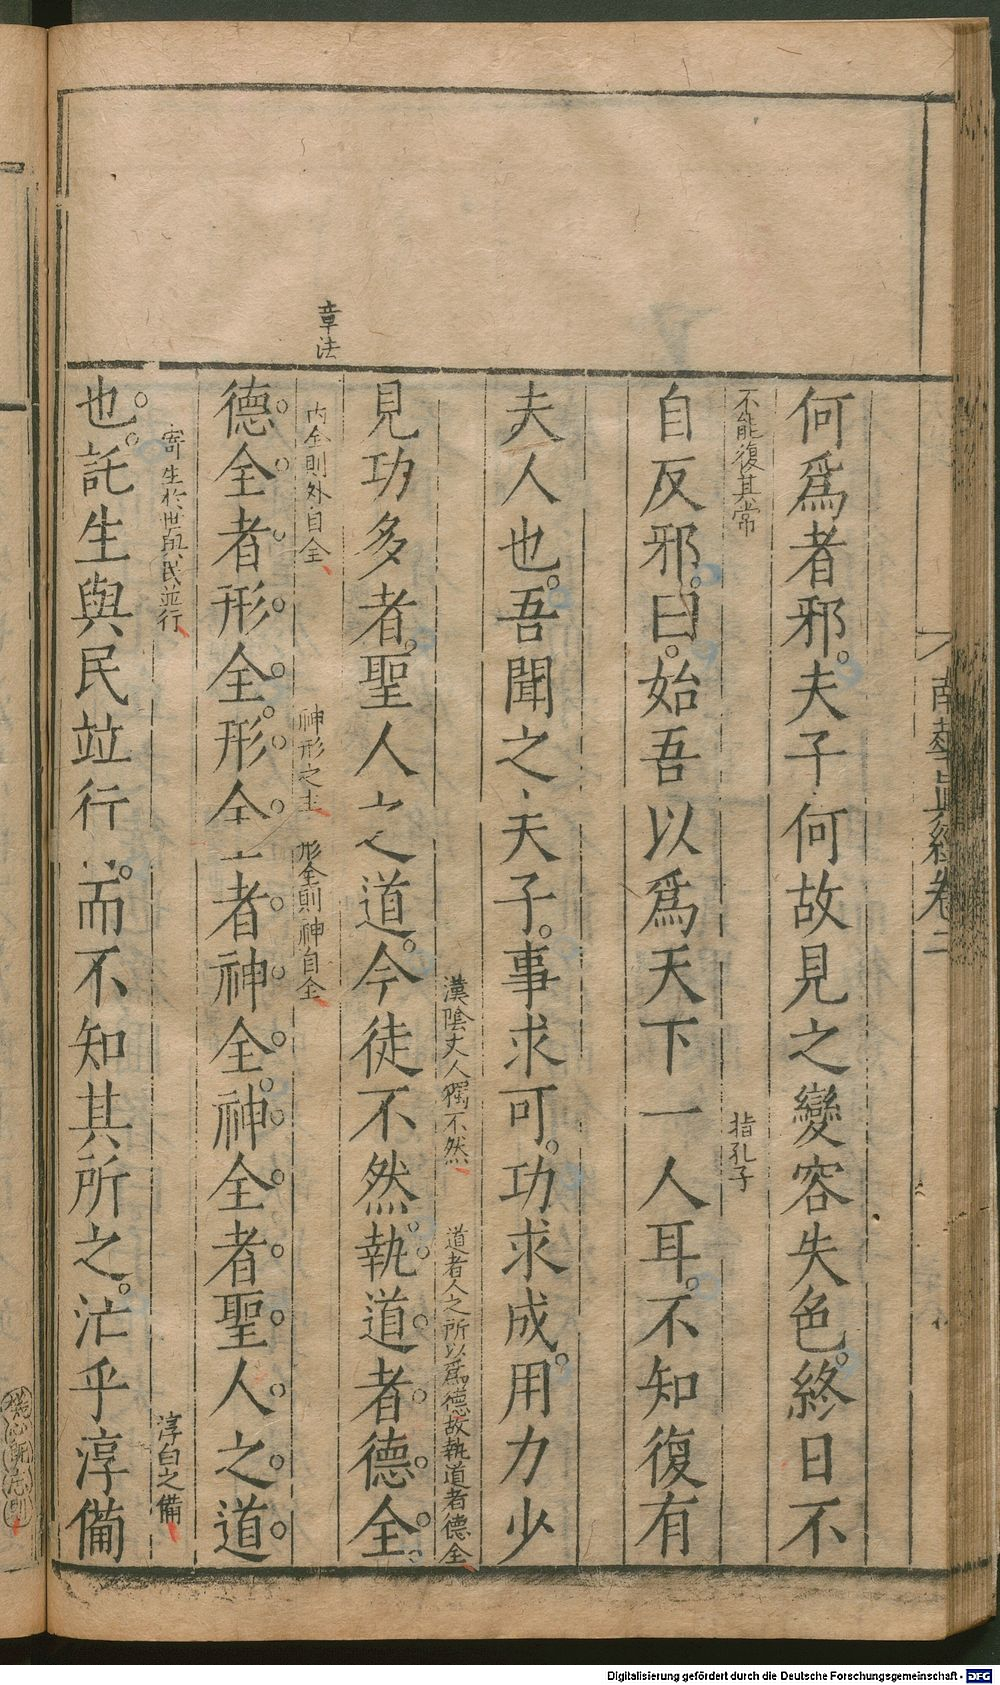 章法
何爲者邪。夫子何故見之變容失色。終日不
不能復其常
指孔子
自反邪。曰。始吾以爲天下一人耳。不知復有
夫人也。吾聞之夫子。事求可。功求成。用力少
漢陰丈人獨不然
道者人之所以爲德故執道者德全
見功多者。聖人之道。今徒不然。執道者德全。
內全則外自全
神形之主
形全則神自全
德全者形全。形全者神全。神全者聖人之道
寄生於世與民並行
淳白之備
也。託生與民竝行。而不知其所之。汒乎淳備
南華眞經卷二
Digitalisierung gefördert durch die Deutsche Forschungsgemeinschaft - DFG